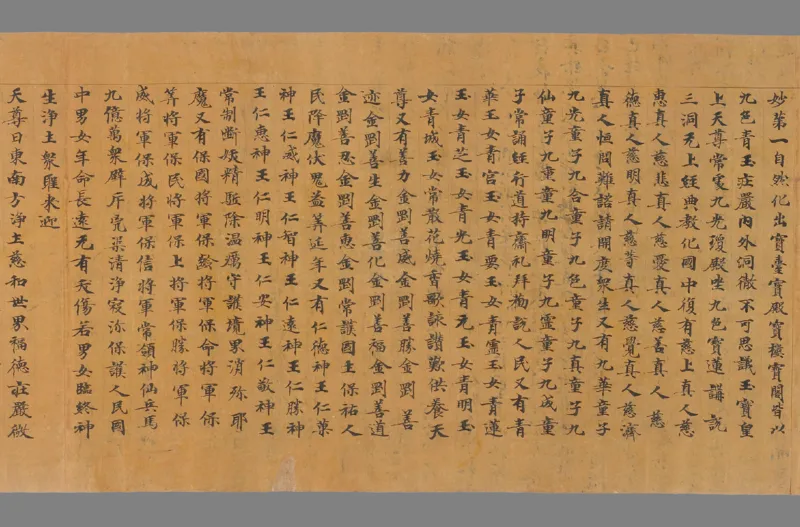 妙第一自然化出寶臺寶殿寶樓寶閣皆以
九色青玉莊嚴內外洞徹不可思議玉寶皇
上天尊常處九光瓊殿坐九色寶蓮講說
三洞无上經典教化國中復有慈上真人慈
惠真人慈悲真人慈愛真人慈善真人慈
德真人慈明真人慈普真人慈覺真人慈濟
真人恒問難諮請開度眾生又有九華童子
九光童子九合童子九色童子九真童子九
仙童子九重童子九明童子九靈童子九成童
子常誦經行道持齋礼拜勸說人民又有青
華玉女青宮玉女青要玉女青靈玉女青蓮
玉女青芝玉女青光玉女青元玉女青明玉
女青城玉女常散花燒香歌詠讚歎供養天
尊又有善力金剛善威金剛善勝金剛善
迹金剛善生金剛善化金剛善福金剛善道
金剛善忍金剛善惠金剛常護國土保祐人
民降魔伏鬼益筭延年又有仁德神王仁藥
神王仁威神王仁智神王仁遠神王仁勝神
王仁惠神王仁明神王仁安神王仁敬神王
常制斷妖精駈除温癘守護境界消弥耶
魔又有保國將軍保齡將軍保命將軍保
筭將軍保民將軍保上將軍保勝將軍保
威將軍保成將軍保信將軍常領神仙兵馬
九億萬眾辟斥氛祟清淨寂弥保護人民國
中男女年命長遠无有夭傷若男女臨終神
生淨土眾聖來迎
天尊曰東南方淨土慈和世界福德莊嚴微